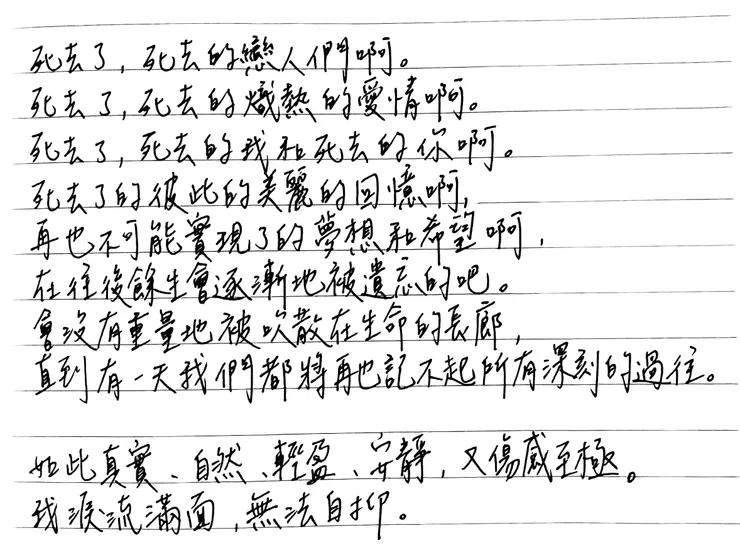 死去了，死去的戀人們啊。
死去了，死去的熾熱的愛情啊。
死去了，死去的我和死去的你啊。
死去了的彼此的美麗的回憶啊，
再也不可能實現了的夢想和希望啊，
在往後餘生會逐漸地被遺忘的吧。
會沒有重量地被吹散在生命的長廊，
直到有一天我們都將再也記不起所有深刻的過往。
如此真實、自然、輕盈、安靜，又傷感至極。
我淚流滿面，無法自抑。